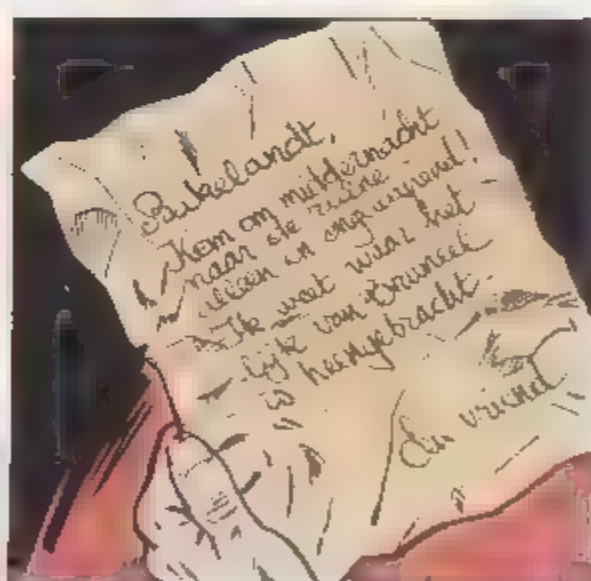 Bakelandt,
Kom om middernacht
naar de ruïne -
alleen en ongewapend!
Ik weet waar het
lijk van Bruneel
is heengebracht.
Een vriend